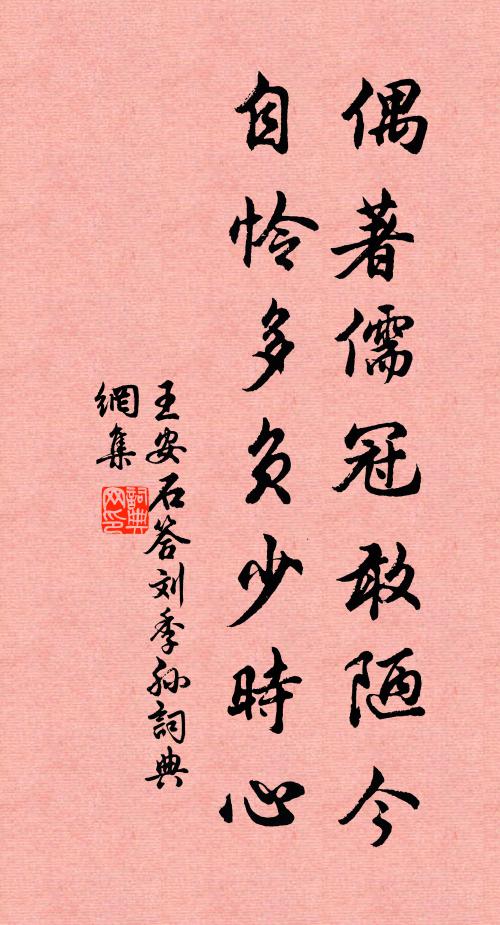 偶著儒冠敢陋今
自怜多负少時心
王安石答刘季孙詞典
網集
詞典网印